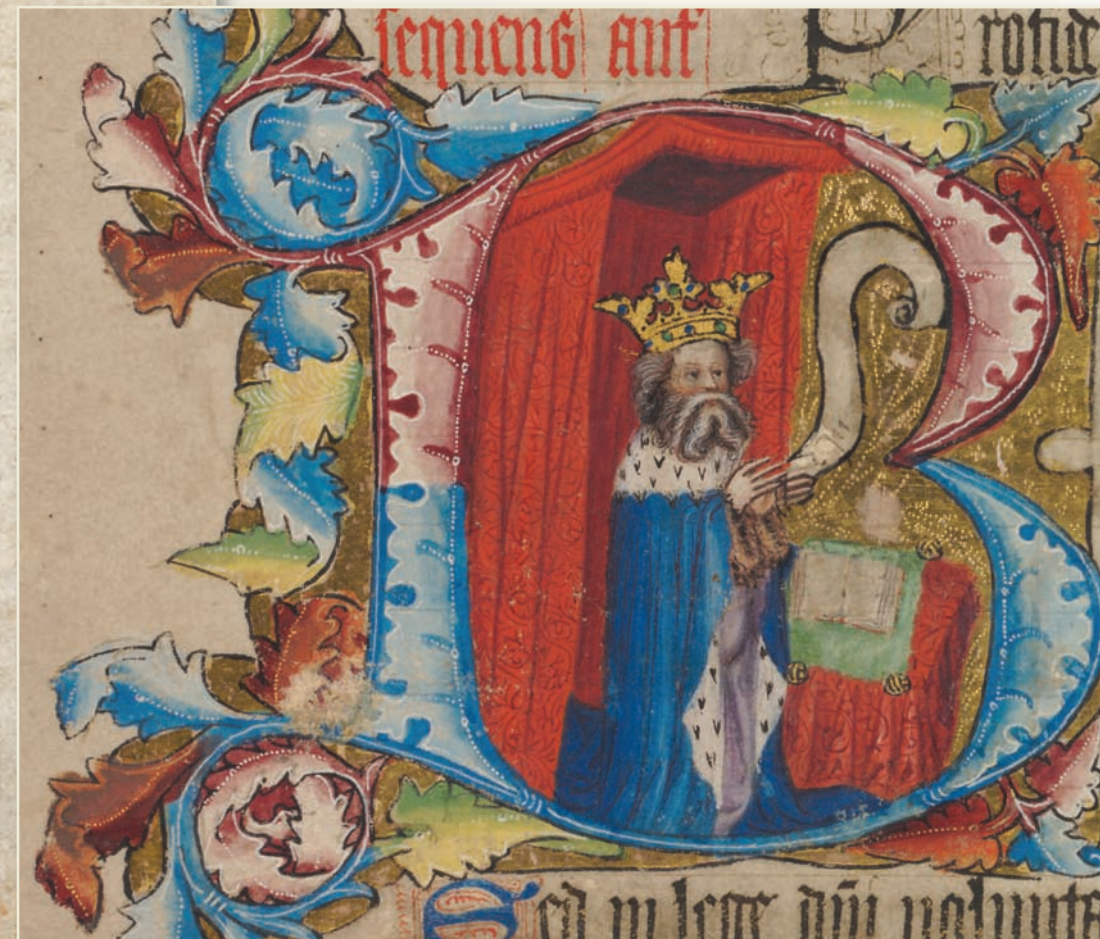 sequens ant
B
Sed in lege dñi volunta